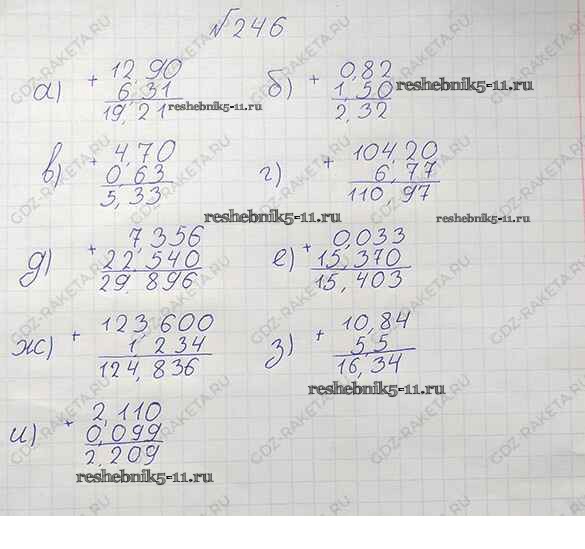 №246
а) + 12,90 б) + 0,82
6,31 1,50
19,21 2,32
reshebnik5-11.ru reshebnik5-11.ru
в) + 4,70 г) + 104,20
0,63 6,77
5,33 110,97
reshebnik5-11.ru reshebnik5-11.ru
д) + 7,356 е) + 0,033
22,540 15,370
29,896 15,403
ж) + 123,600 з) + 10,84
1,234 5,5
124,836 16,34
reshebnik5-11.ru
и) + 2,110
0,099
2,209
reshebnik5-11.ru
GDZ-RAKETA.RU